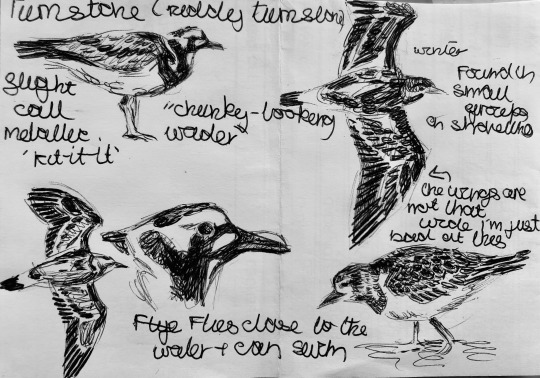 Turnstone (ruddy turnstone)
slight
call
metallic.
'kit-it-it'
"chunky-looking
wader"
winter
Found in
small
groups
on shoreline
the wings are
not that
wide i'm just
bad at this
Flye Flies close to the
water + can swim